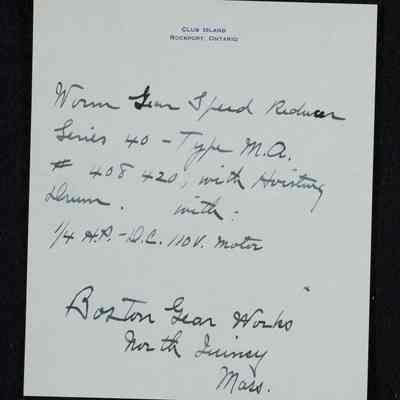 Club Island
Rockport, Ontario
Worm Gear Speed Reducer
Series 40 - Type M.A.
# 408 420, with Hoisting
Drum. with:
1/4 H.P. - D.C. 110 V. Motor
Boston Gear Works
North Quincy
Mass.